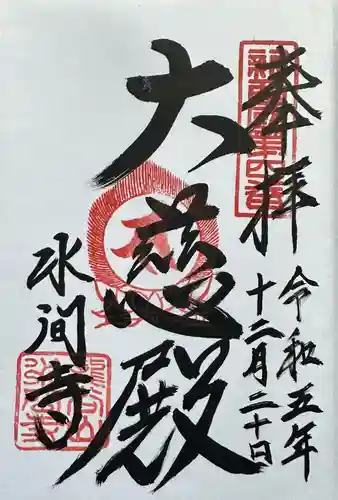 奉拝
令和五年
十二月二十日
大慈殿
水間寺